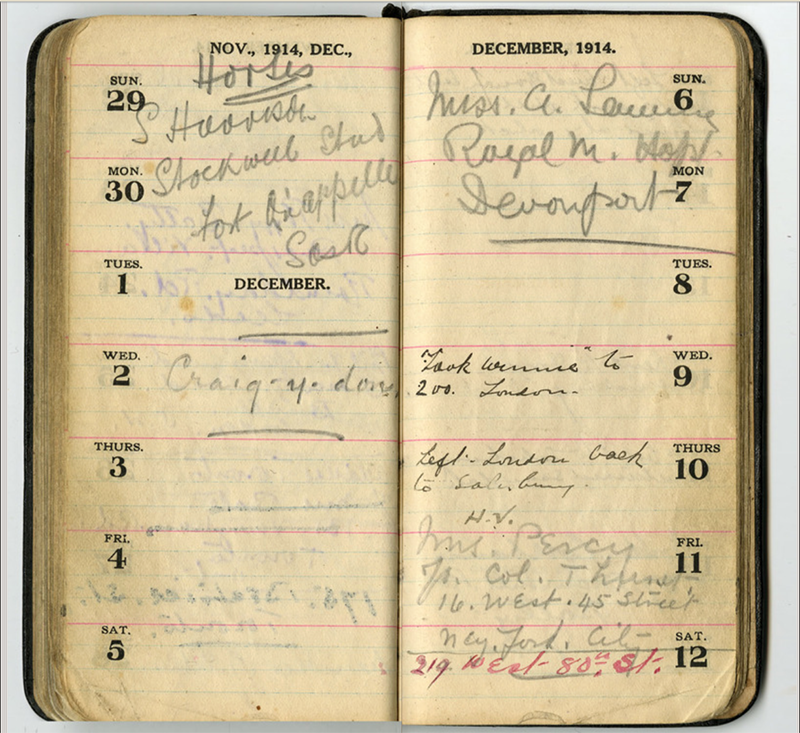 NOV., 1914, DEC.,
Horses
SUN.
29
S Harrison
MON.
30
Stockwell Stud
Fort Qu'appelle
Sask
TUES.
1
DECEMBER.
WED.
2
Craig-y-don
THURS.
3
FRI.
4
SAT.
5
DECEMBER, 1914.
SUN.
6
Miss. A.
Royal M. Hospt.
MON
7
Devonport
TUES.
8
WED.
9
"Took Winnie" to
zoo. London.
THURS
10
Left London back
to Salisbury.
FRI.
11
Mrs. Percy
Col.
16. West. 45 Street
New York. City
SAT.
12
219 West 80th St.